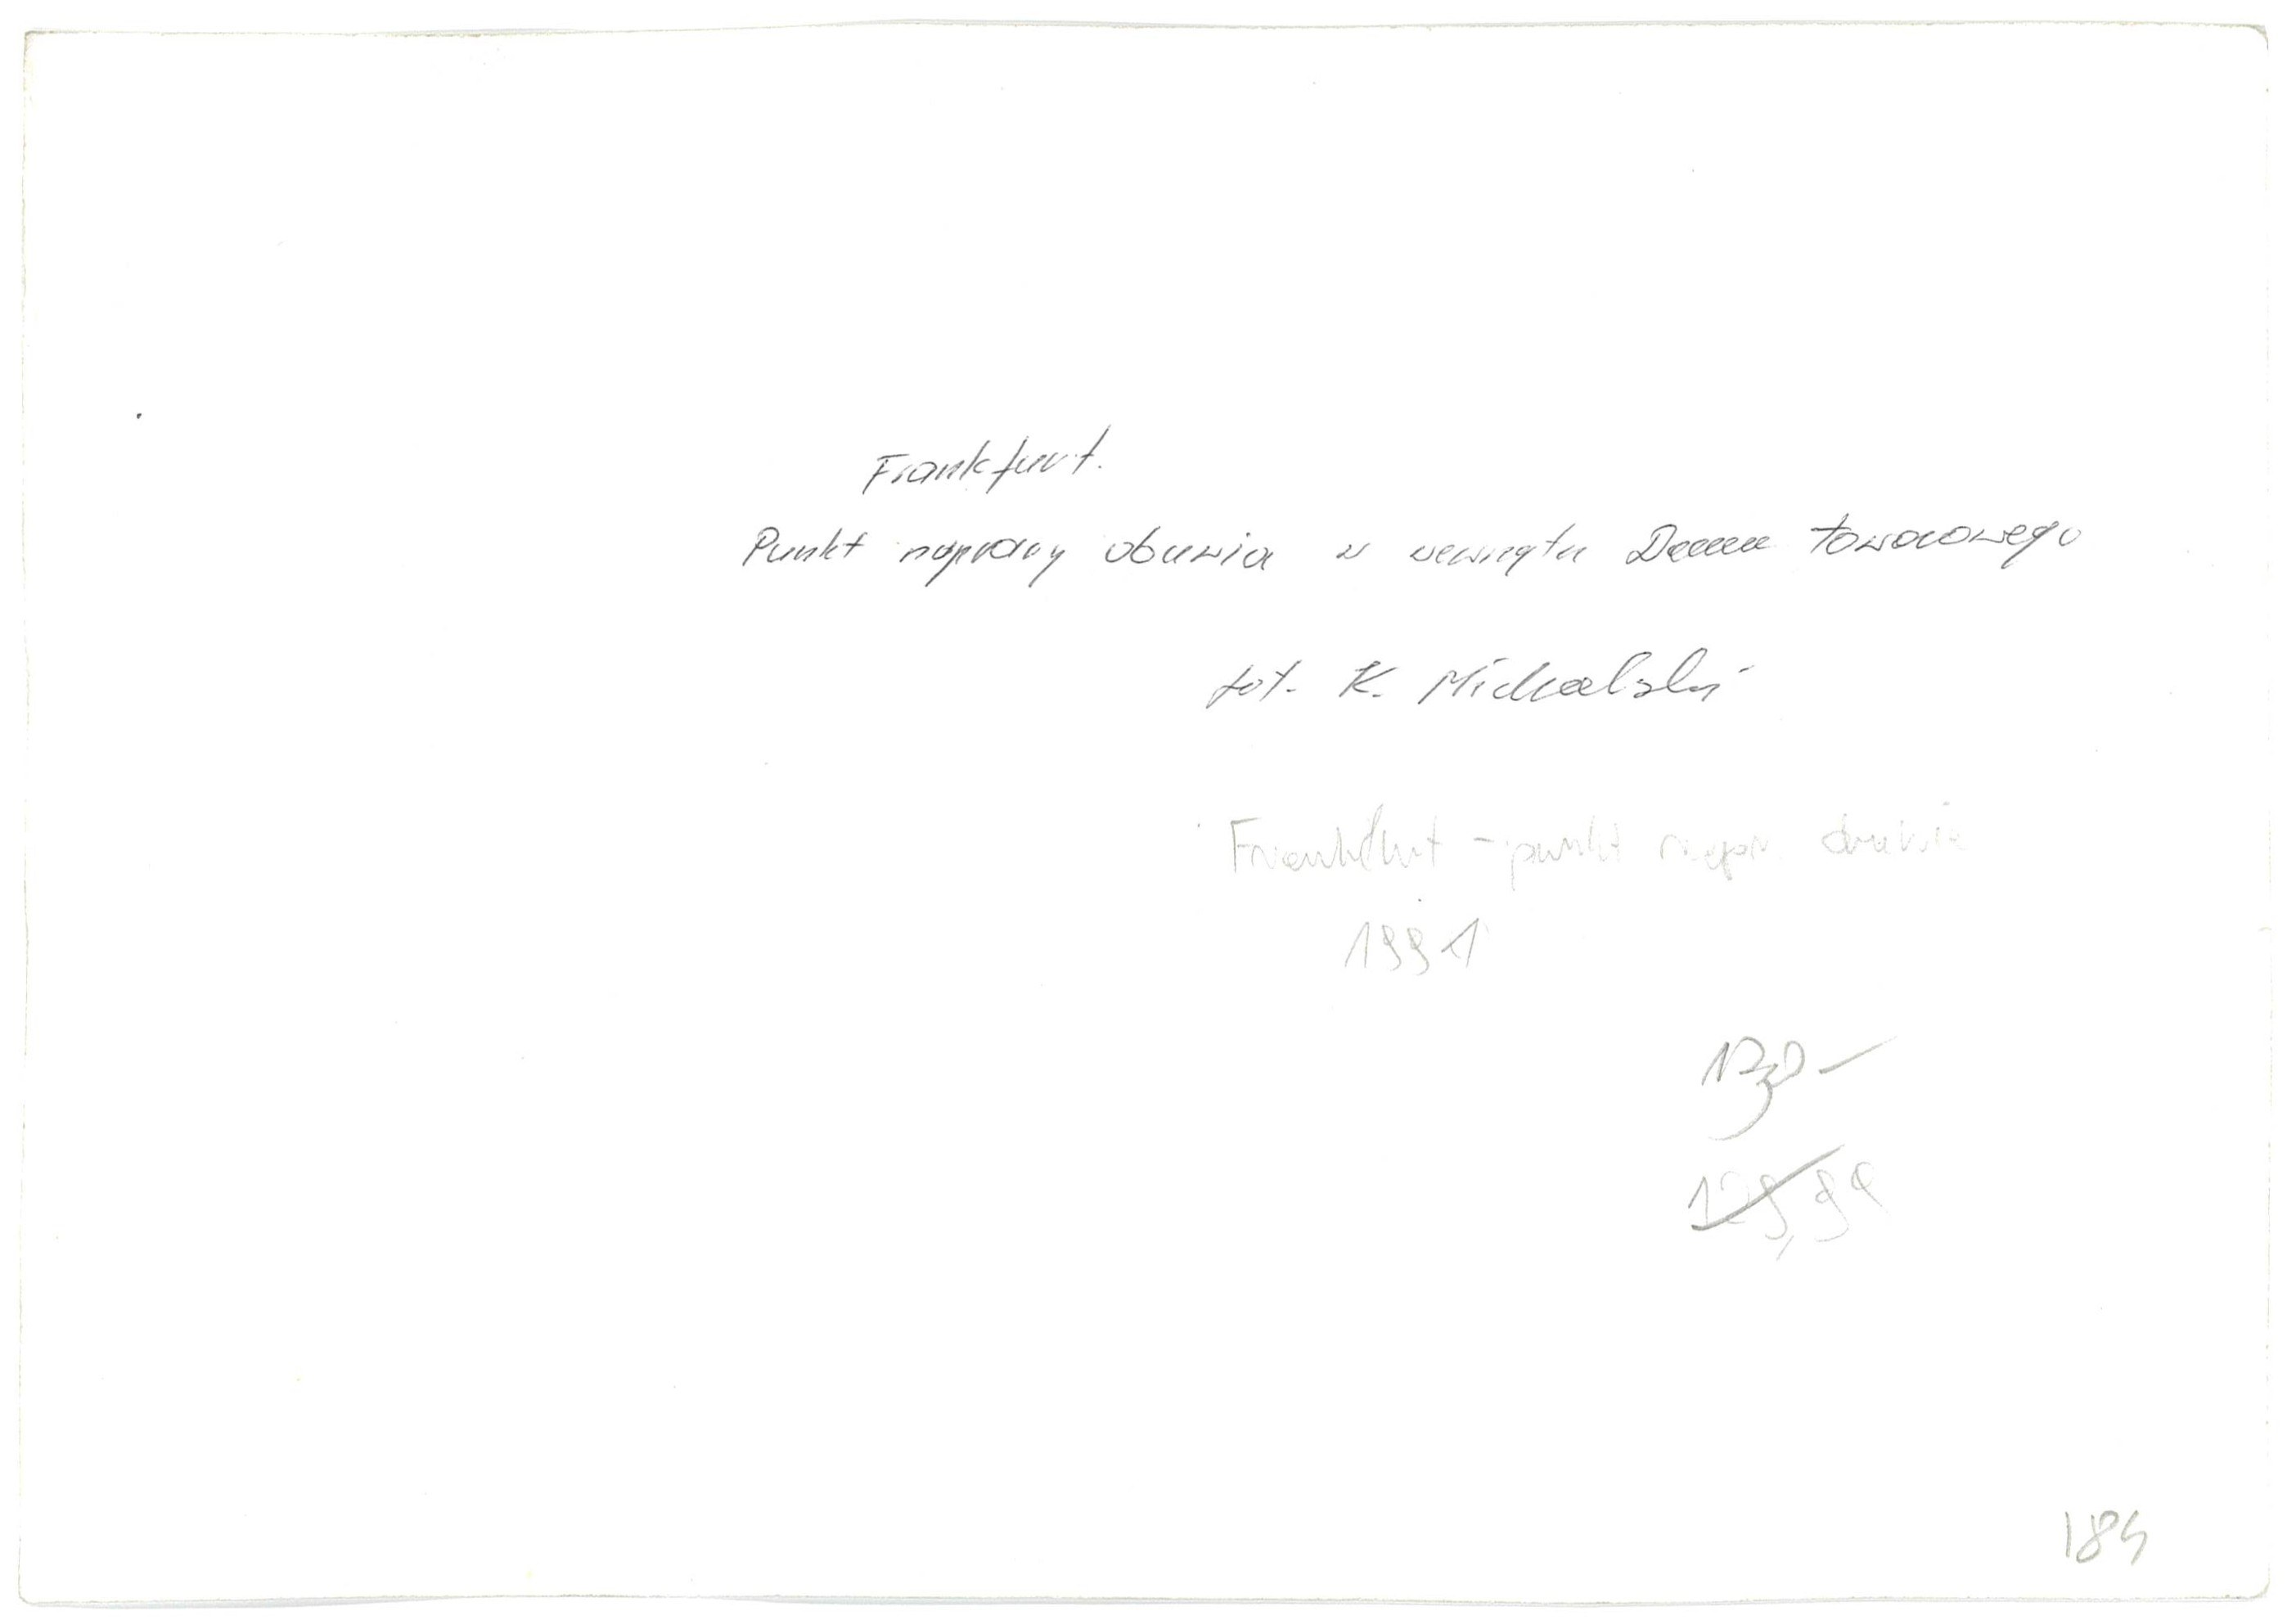 Frankfurt.
Punkt naprawy obuwia w wewnątrz Domu towarowego
fot. K. Michalski
Frankfurt - punkt napr. obuwia
1991
129,99
184